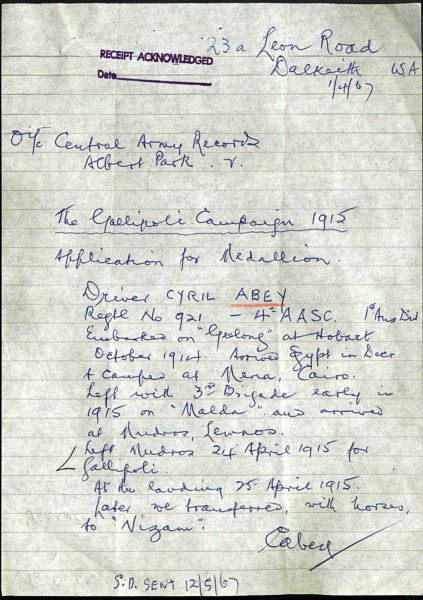 RECEIPT ACKNOWLEDGED
Date
23a Leon Road
Dalkeith WA
1/4/67
O i/c Central Army Records
Albert Park. V.
The Gallipoli Campaign 1915
Application for Medallion.
Driver CYRIL ABEY
Regtl No 921 - 4th AASC. 1st Aus Div
Embarked on "Geelong" at Hobart
October 1914 Arrived Egypt in Decr
& camped at Mena, Cairo.
Left with 3rd Brigade early in
1915 on "Malda" and arrived
at Mudros, Lemnos.
Left Mudros 24 April 1915 for
Gallipoli.
At the landing 25 April 1915.
Later we transferred, with horses,
to "Nizam".
CAbey
S.D. SENT 12/5/67